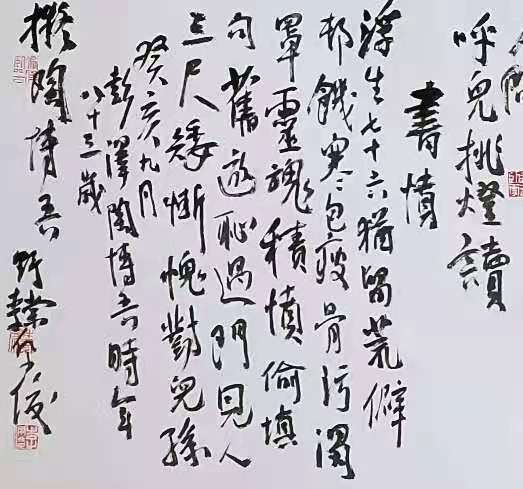 呼兒挑燈讀
書憤
浮生七十六猶留荒僻
邨饑寒包瘦骨污濁
罩靈魂積憤偷填
句舊遊恥過門見人
三尺矮慚愧對兒孫
癸亥九月
彭澤陶博吾時年
八十三歲
撥陶博吾